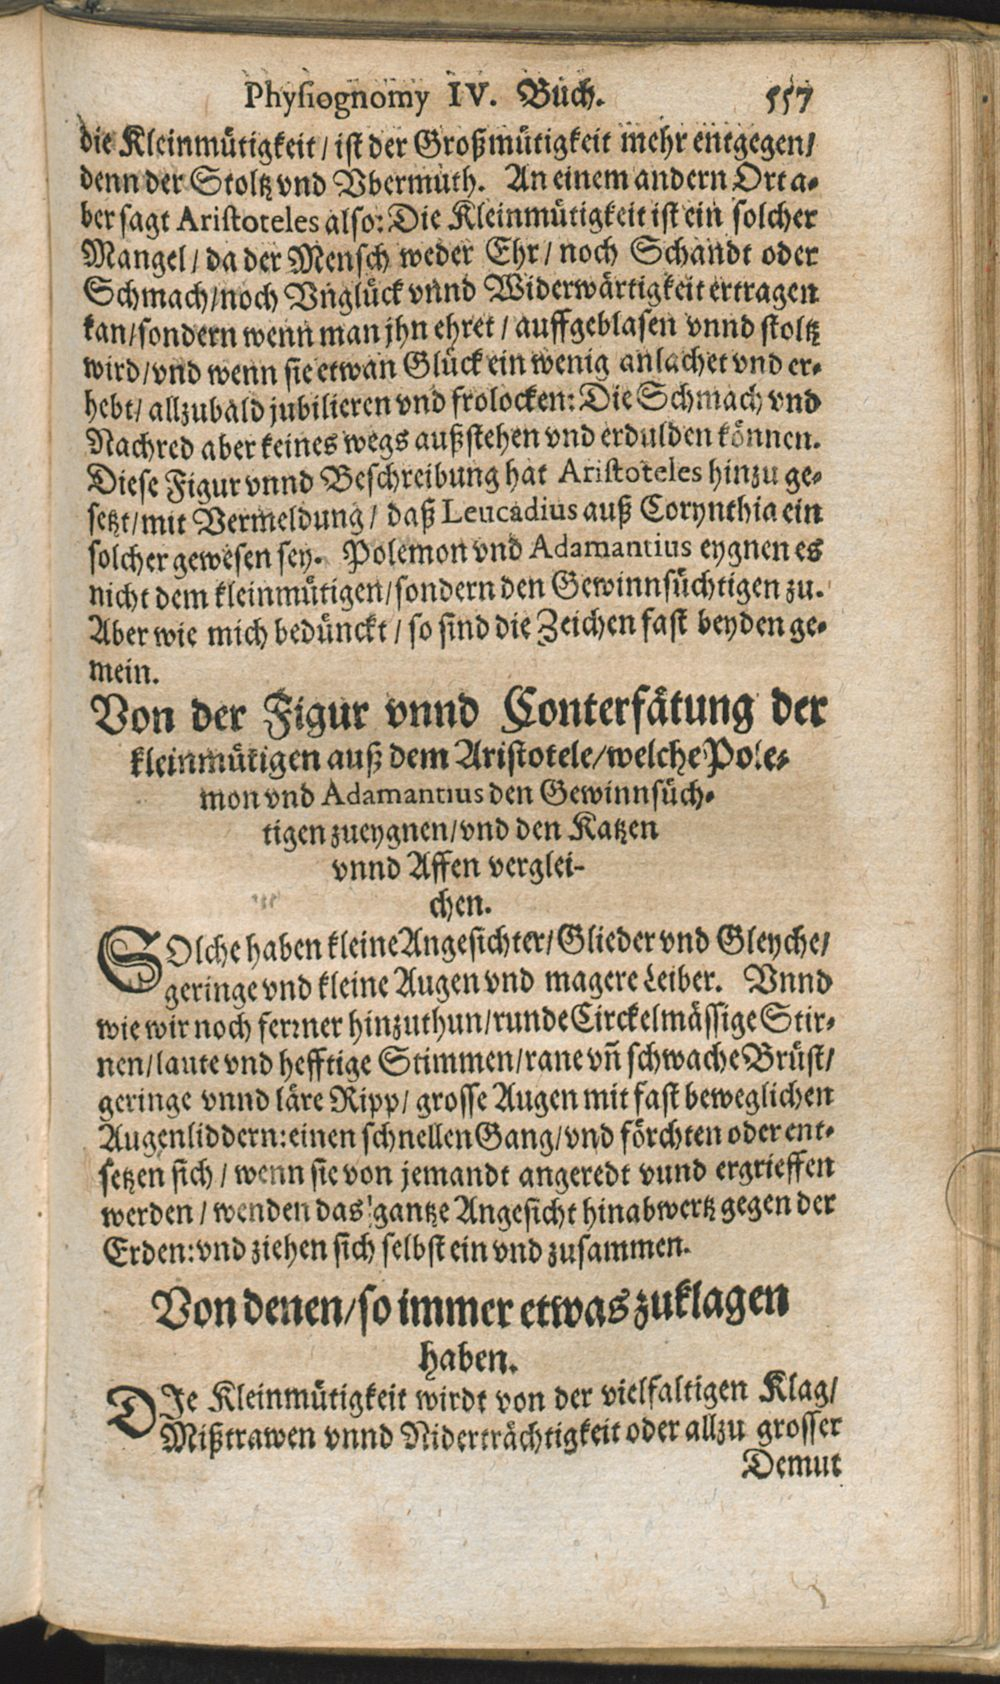 Physiognomy IV. Buch. 557
die Kleinmütigkeit / ist der Großmütigkeit mehr entgegen /
denn der Stoltz vnd Vbermuth. An einem andern Ort a-
ber sagt Aristoteles also: Die Kleinmütigkeit ist ein solcher
Mangel / da der Mensch weder Ehr / noch Schandt oder
Schmach / noch Vnglück vnnd Widerwärtigkeit ertragen
kan / sondern wenn man jhn ehret / auffgeblasen vnnd stoltz
wird / vnd wenn sie etwan Glück ein wenig anlachet vnd er-
hebt / allzubald jubilieren vnd frolocken: Die Schmach vnd
Nachred aber keines wegs außstehen vnd erdulden können.
Diese Figur vnnd Beschreibung hat Aristoteles hinzu ge-
setzt / mit Vermeldung / daß Leucadius auß Corynthia ein
solcher gewesen sey. Polemon vnd Adamantius eygnen es
nicht dem kleinmütigen / sondern den Gewinnsüchtigen zu.
Aber wie mich bedünckt / so sind die Zeichen fast beyden ge-
mein.
Von der Figur vnnd Conterfätung der
kleinmütigen auß dem Aristotele / welche Pole-
mon vnd Adamantius den Gewinnsüch-
tigen zueygnen / vnd den Katzen
vnnd Affen verglei-
chen.
SOlche haben kleine Angesichter / Glieder vnd Gleyche /
geringe vnd kleine Augen vnd magere Leiber. Vnnd
wie wir noch ferrner hinzuthun / runde Circkelmässige Stir-
nen / laute vnd hefftige Stimmen / rane vn̄ schwache Brüst /
geringe vnnd läre Ripp / grosse Augen mit fast beweglichen
Augenliddern: einen schnellen Gang / vnd förchten oder ent-
setzen sich / wenn sie von jemandt angeredt vund ergrieffen
werden / wenden das gantze Angesicht hinabwertz gegen der
Erden: vnd ziehen sich selbst ein vnd zusammen.
Von denen / so immer etwas zuklagen
haben.
DIe Kleinmütigkeit wirdt von der vielfaltigen Klag /
Mißtrawen vnnd Niderträchtigkeit oder allzu grosser
Demut